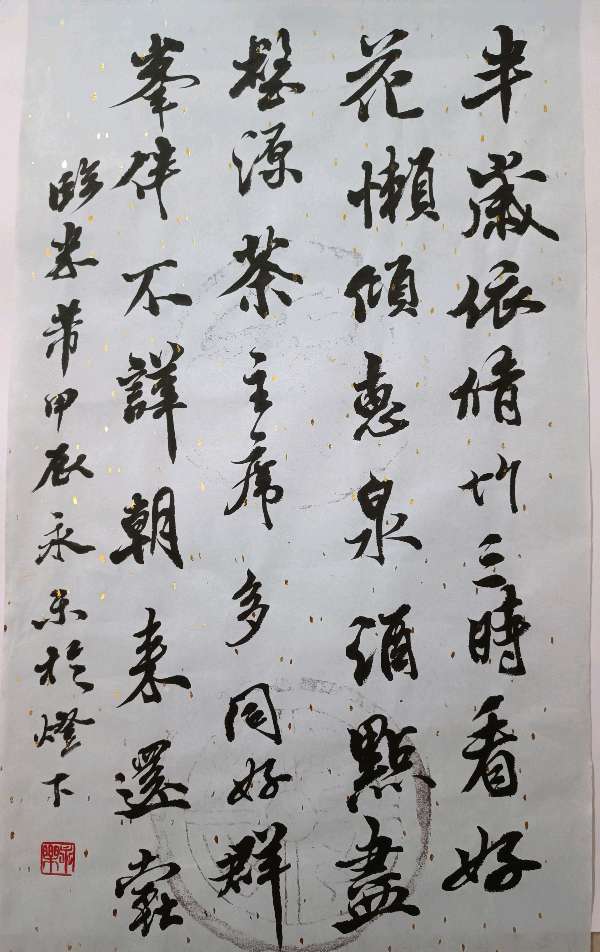 半歲依脩竹三時看好
花懶傾惠泉酒點盡
壑源茶主席多同好群
峯伴不譁朝来還蠹
臨米芾甲辰永乐於燈下
永樂